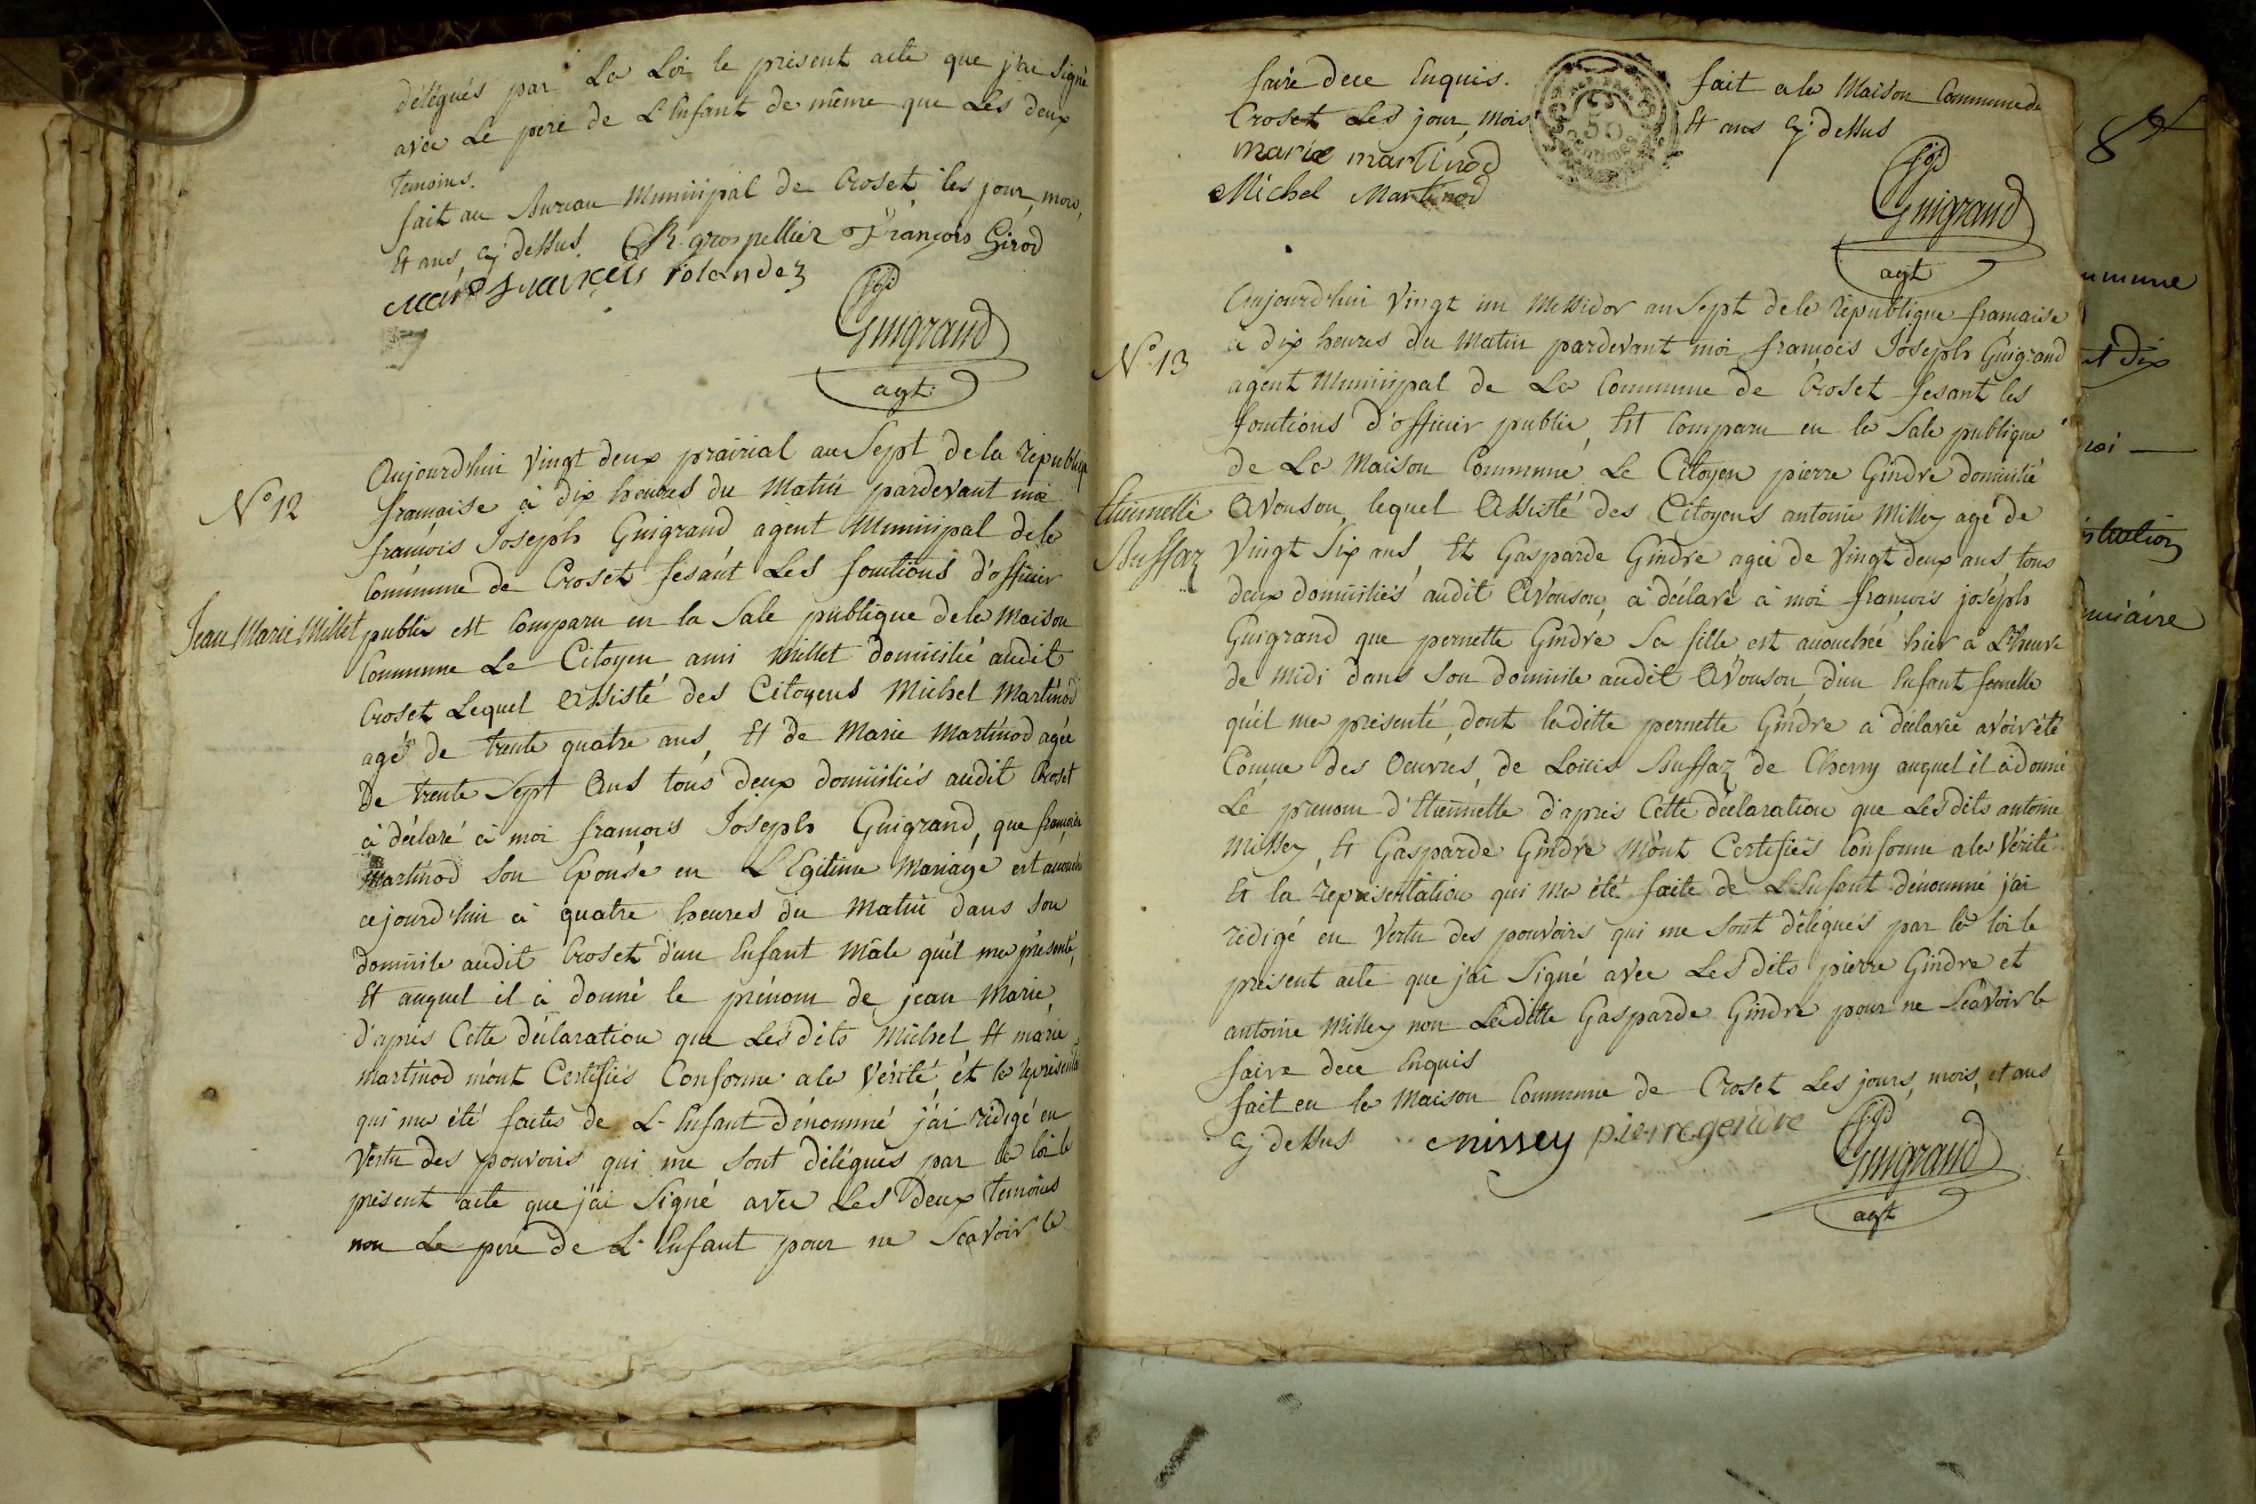 délégués par La Loi le présent acte que j'ai signé
avec Le pere de L'Enfant de même que Les deux
temoins.
fait au Bureau Municipal de Croset les jour, mois,
Et ans cy dessus. grospellier François Girod
rolandez
Guigrand
agt.
N° 12
Jean Marie Millet
Aujourd'hui vingt deux prairial an Sept de la republique
française à dix heures du matin pardevant moi
françois Joseph Guigrand agent Municipal de la
Commune de Croset fesant Les fonctions d'officier
public est comparu en la Sale publique de la Maison
Commune Le Citoyen ami Millet domicilié audit
Croset Lequel Assisté des Citoyens Michel Martinod
agé de trente quatre ans, Et de Marie Martinod agée
de trente Sept Ans tous deux domiciliés audit Croset
à déclaré à moi françois Joseph Guigrand, que françoise
Martinod son Epouse en LEgitime Mariage est accouchée
cejourd'hui à quatre heures du Matin dans son
domicile audit Croset d'un Enfant Mâle qu'il ma présenté,
Et auquel il à donné le prénom de jean Marie,
d'après Cette déclaration que Lesdits Michel Et marie
martinod m'ont Certifiés Conforme a la Vérité et la représentation
qui ma été faites de L'Enfant dénommé j'ai rédigé en
Vertu des pouvoirs qui me sont délégués par la loi le
présent acte que j'ai Signé avec Les Deux temoins
non Le pere de L'Enfant pour ne Scavoir le
faire dece Enquis. fait a la Maison Commune de
Croset Les jour, mois Et ans cy dessus
marie martinod
Michel Martinod
50
centimes
Guigrand
agt
N° 13
Etiennette
Buffaz
Aujourd'hui vingt un Messidor an Sept de la république française
à dix heures du Matin pardevant moi françois Joseph Guigrand
agent Municipal de La Commune de Croset fesant les
fonctions d'officier public, Est Comparu en la Sale publique
de La Maison Commune Le Citoyen pierre Gindre domicilié
Avouson, lequel Assisté des Citoyens antoine Missey agé de
Vingt Six ans, Et Gasparde Gindre agée de Vingt deux ans, tous
deux domiciliés audit Avouson, à déclaré à moi françois joseph
Guigrand que pernette Gindre Sa fille est accouchée hier à L'heure
de midi dans son domicile audit Avouson, d'un Enfant femelle
qu'il ma présenté, dont laditte pernette Gindre a déclarée avoir été
Conçue des Oeuvres de Louis Buffaz de Chevry auquel il à donné
Le prenom d'Etiennette d'après Cette déclaration que Lesdits antoine
Missey, Et Gasparde Gindre M'ont Certifiés Conforme a la Vérité
Et la représentation qui Ma été faite de L'Enfant dénommé j'ai
rédigé en Vertu des pouvoirs qui me sont délégués par la loi le
présent acte que j'ai Signé avec Les dits pierre Gindre et
antoine Missey non Laditte Gasparde Gindre pour ne Scavoir le
faire dece Enquis
fait en la Maison Commune de Croset Les jours, mois, et ans
cy dessus missey pierre gendre
Guigrand
agt
8